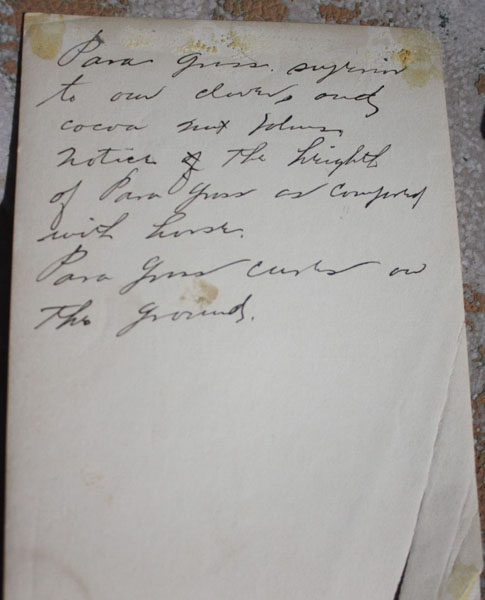 Para Grass. superior
to our clover, and
cocoa nut
notice the heighth
of Para Grass as compared
with horse.
Para Grass cures on
the ground.